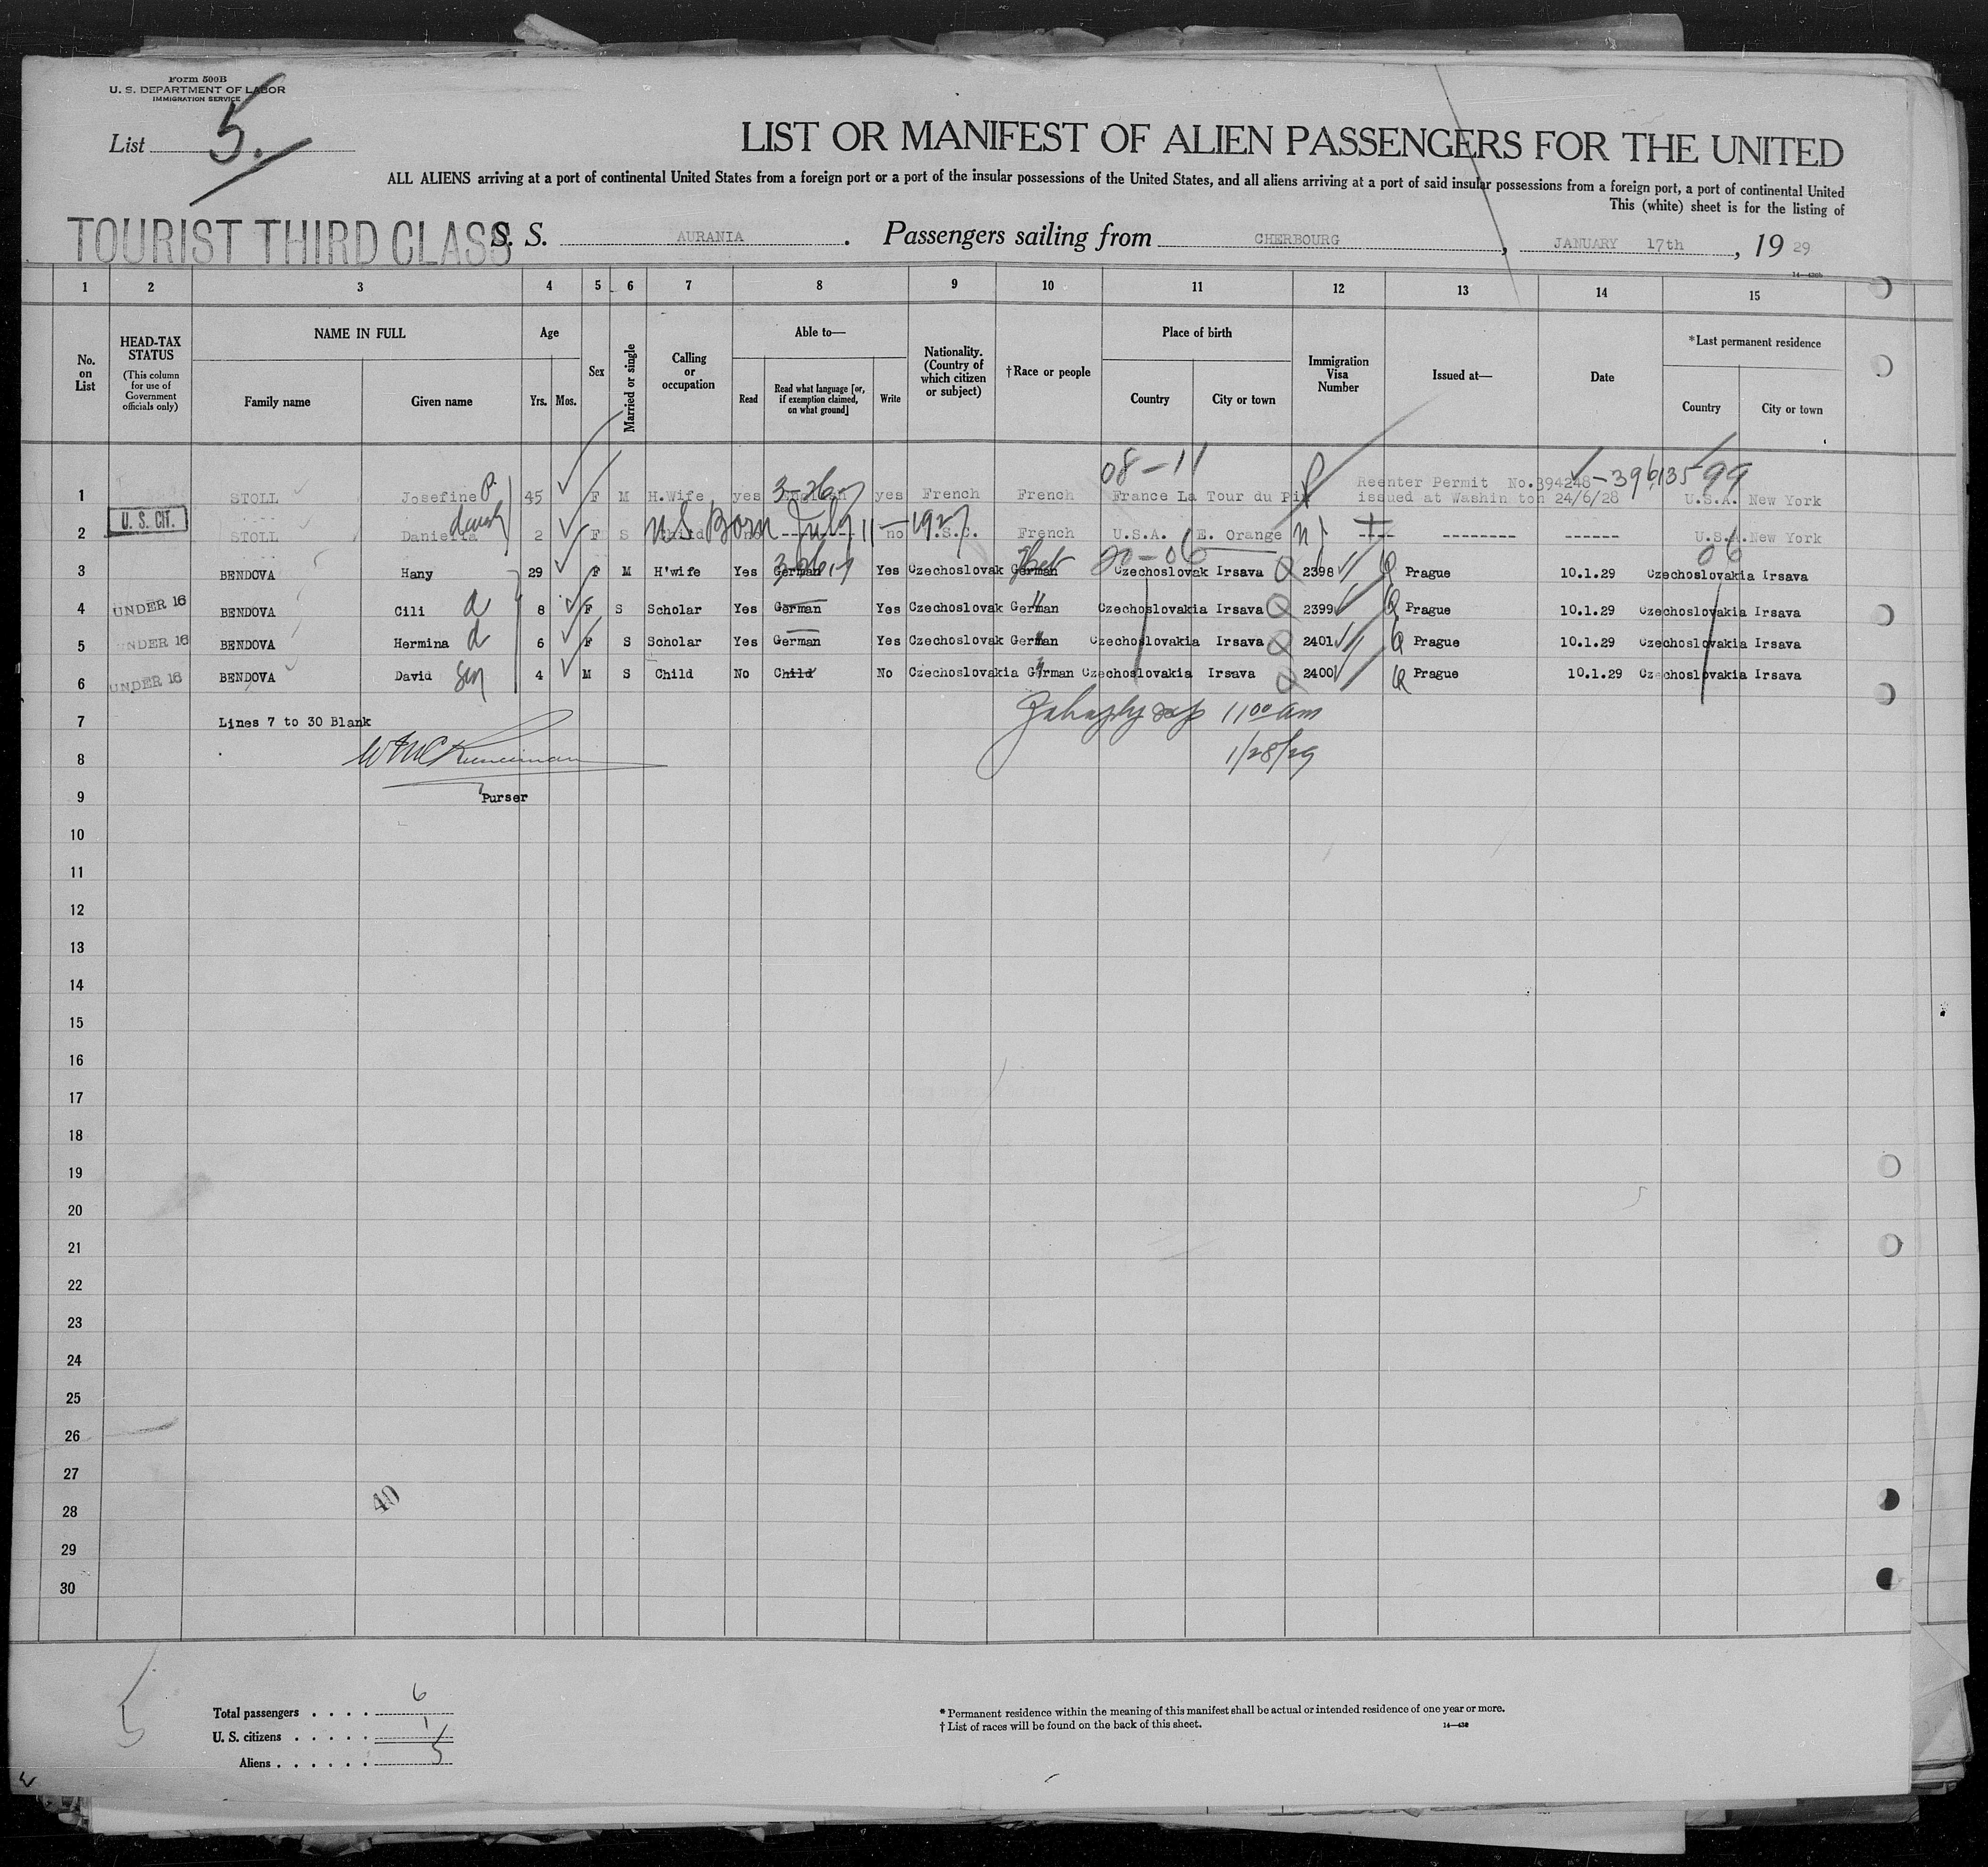 Form 500B
U. S. DEPARTMENT OF LABOR
IMMIGRATION SERVICE
List 5.
LIST OR MANIFEST OF ALIEN PASSENGERS FOR THE UNITED
ALL ALIENS arriving at a port of continental United States from a foreign port or a port of the insular possessions of the United States, and all aliens arriving at a port of said insular possessions from a foreign port, a port of continental United
This (white) sheet is for the listing of
TOURIST THIRD CLASS S. S. AURANIA. Passengers sailing from CHERBOURG, JANUARY 17th, 19 29
1 2 3 4 5 6 7 8 9 10 11 12 13 14 15
No. on List
HEAD-TAX STATUS (This column for use of Government officials only)
NAME IN FULL Family name Given name
Age Yrs. Mos.
Sex
Married or single
Calling or occupation
Able to— Read Read what language [or, if exemption claimed, on what ground] Write
Nationality. (Country of which citizen or subject)
†Race or people
Place of birth Country City or town
Immigration Visa Number
Issued at—
Date
*Last permanent residence Country City or town
08-11
Reenter Permit No.394248 -396135 99
1 STOLL Josefine P. 45 F M H.Wife yes English 3-26-7 yes French French France La Tour du Pin issued at Washin ton 24/6/28 U.S.A. New York
2 U. S. CIT. STOLL Daniella 2 F S Child US Born July 11-1927 no no U.S.C. French U.S.A. E. Orange NJ ---- -------- ------ U.S.A. New York
20-06 06
3 BENDOVA Hany 29 F M H'wife Yes German Yes Czechoslovak German Heb Czechoslovak Irsava Q 2398 Q Prague 10.1.29 Czechoslovakia Irsava
4 UNDER 16 BENDOVA Cili d 8 F S Scholar Yes German Yes Czechoslovak German Czechoslovakia Irsava Q 2399 Q Prague 10.1.29 Czechoslovakia Irsava
5 UNDER 16 BENDOVA Hermina d 6 F S Scholar Yes German Yes Czechoslovak German Czechoslovakia Irsava Q 2401 Q Prague 10.1.29 Czechoslovakia Irsava
6 UNDER 16 BENDOVA David son 4 M S Child No Child No Czechoslovakia German Czechoslovakia Irsava Q 2400 Q Prague 10.1.29 Czechoslovakia Irsava
7 Lines 7 to 30 Blank 11 00 am
8 1/28/29
9 Purser
10
11
12
13
14
15
16
17
18
19
20
21
22
23
24
25
26
27
28
40
29
30
5
Total passengers . . . . 6
U. S. citizens . . . . . 1
Aliens . . . . . . 5
* Permanent residence within the meaning of this manifest shall be actual or intended residence of one year or more.
† List of races will be found on the back of this sheet.